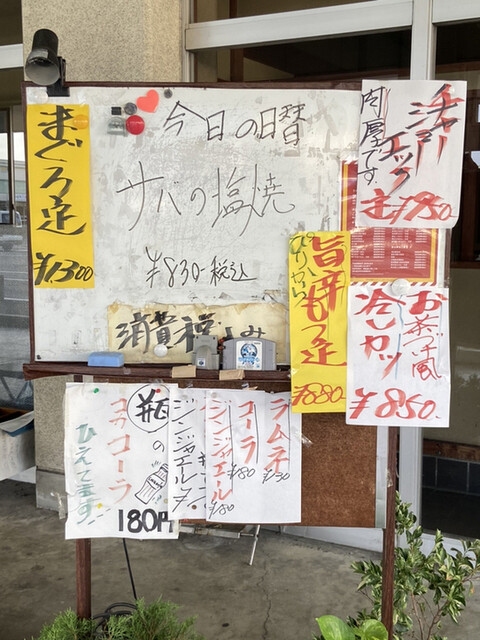 今日の日替
サバの塩焼
¥830-税込
まぐろ定
¥1,300
チャーシューエッグ
肉屋です。
¥950-
旨辛もつ定
ぴりから
¥880
お茶づけ風
冷しカツ
¥850-
消費税込み
瓶の
コカコーラ
ひえてます!!
180円
ジンジャエール
ラムネ
¥130
コーラ
¥180
ジンジャエール
¥180